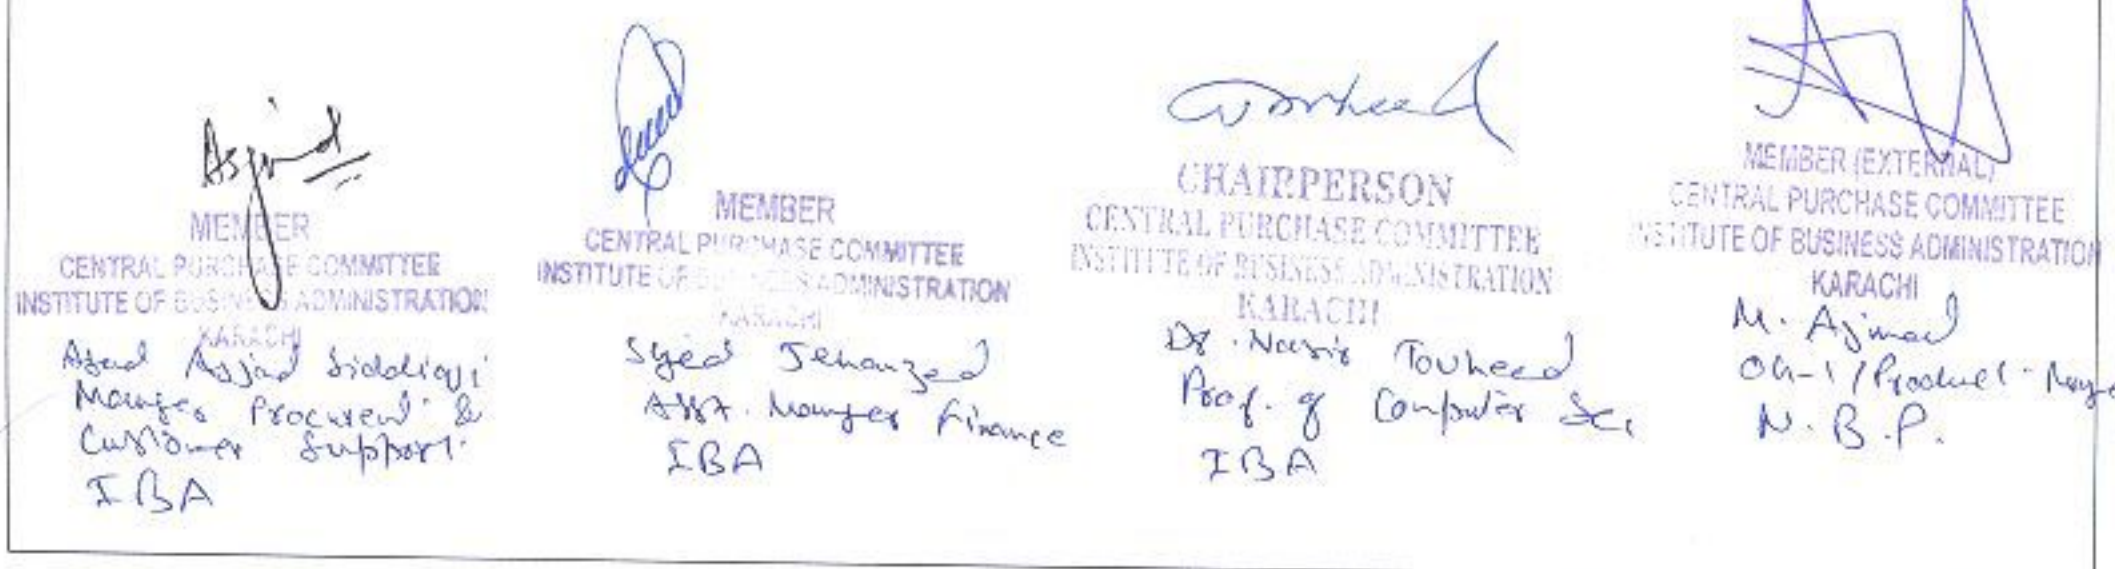 Asjad
MEMBER
CENTRAL PURCHASE COMMITTEE
INSTITUTE OF BUSINESS ADMINISTRATION
KARACHI
Asjad Siddiqui
Manager Procurent &
Customer Support
IBA
MEMBER
CENTRAL PURCHASE COMMITTEE
INSTITUTE OF BUSINESS ADMINISTRATION
KARACHI
Syed Jehanzed
Asst. Manger Finance
IBA
CHAIRPERSON
CENTRAL PURCHASE COMMITTEE
INSTITUTE OF BUSINESS ADMINISTRATION
KARACHI
Dr. Nasir Touheed
Prof. of Computer Sc,
IBA
MEMBER (EXTERNAL)
CENTRAL PURCHASE COMMITTEE
INSTITUTE OF BUSINESS ADMINISTRATION
KARACHI
M. Ajmad
OG-1/Product
N.B.P.